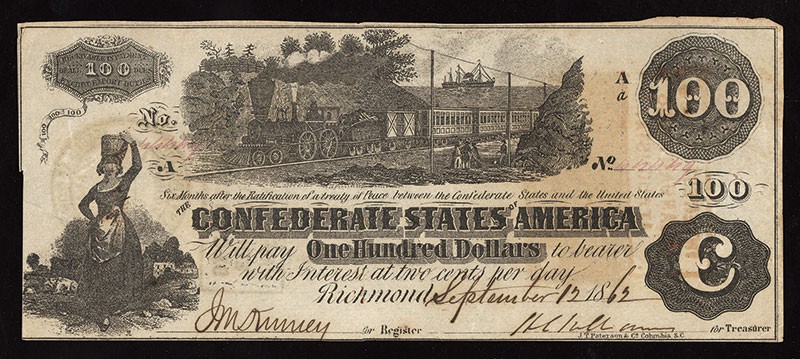 RECEIVABLE IN PAYMENT OF
ALL DUES 100
EXCEPT EXPORT DUTIES
100 100 100
100
No.
A
A
a
No
Six Months after the Ratification of a treaty of Peace between the Confederate States and the United States
100
THE CONFEDERATE STATES OF AMERICA
Will pay One Hundred Dollars to bearer
with Interest at two cents per day
C
Richmond September 12 1862
for Register
for Treasurer
J.T. Paterson & Co. Columbia, S.C.